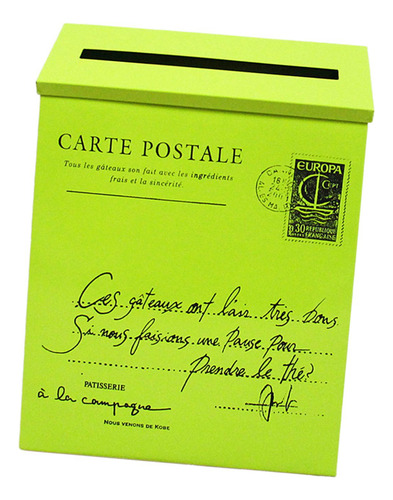 CARTE POSTALE
Tous les gâteaux son fait avec les ingrédients
frais et la sincérité.
EUROPA
CEPT
0,30 REPUBLIQUE
FRANÇAISE
Ces gâteaux ont l'air très bons
Si nous faisions une Pause Pour
Prendre le thé?
PATISSERIE
à la campagne
NOUS VENONS DE KOBE